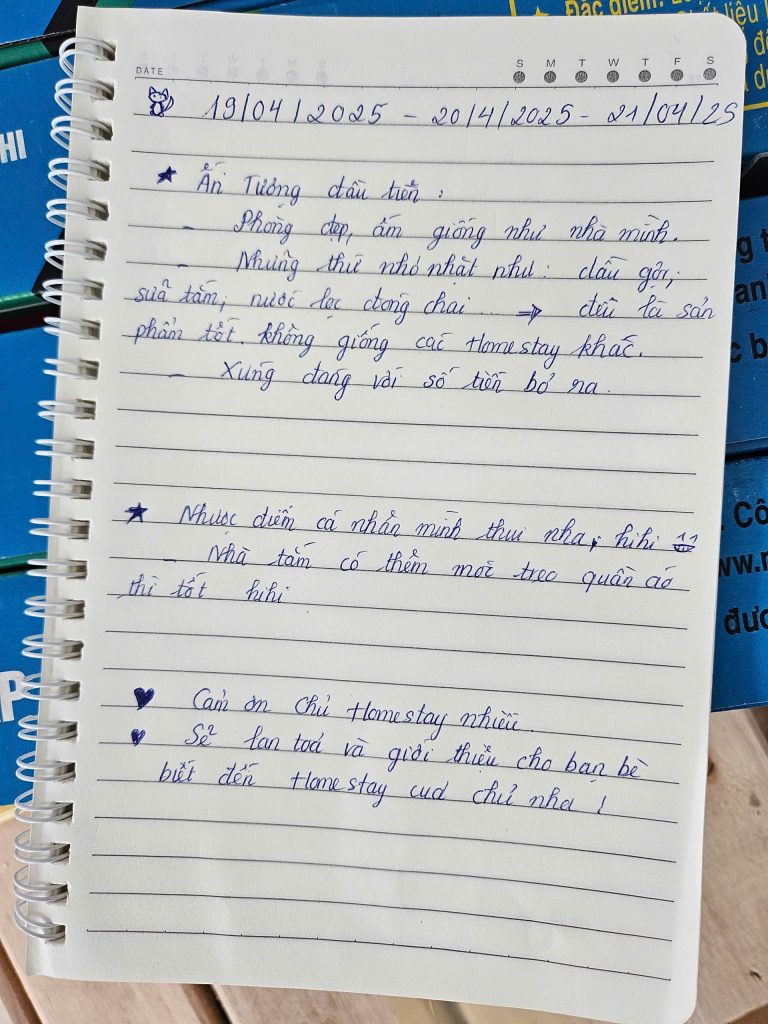 Đặc điểm:
liệu
HI
DATE
S M T W T F S
19/04/2025 - 20/4/2025 - 21/04/25
★ Ấn Tượng đầu tiên :
- Phòng đẹp, ấm giống như nhà mình.
- Những thứ nhỏ nhặt như: dầu gội,
sữa tắm, nước lọc đóng chai ... => đều là sản
phẩm tốt. không giống các Homestay khác.
- Xứng đáng với số tiền bỏ ra.
★ Nhược điểm cá nhân mình thui nha, hihi
- Nhà tắm có thêm móc treo quần áo
thì tốt hihi
♥ Cảm ơn chủ Homestay nhiều.
♥ Sẽ lan toả và giới thiệu cho bạn bè
biết đến Homestay của chủ nha !